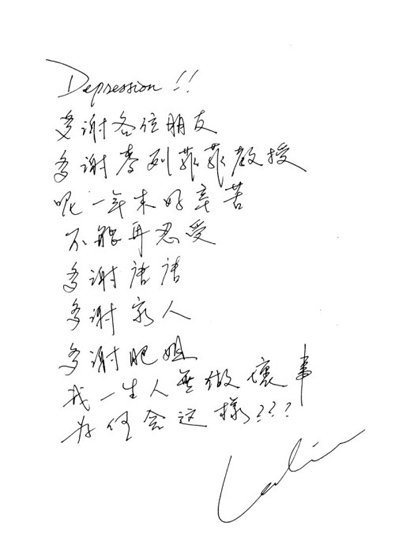 Depression!!
多谢各位朋友
多谢麥列菲菲教授
呢一年來好辛苦
不能再忍受
多谢唐唐
多谢家人
多谢肥姐
我一生人無做壞事
为何会这樣???